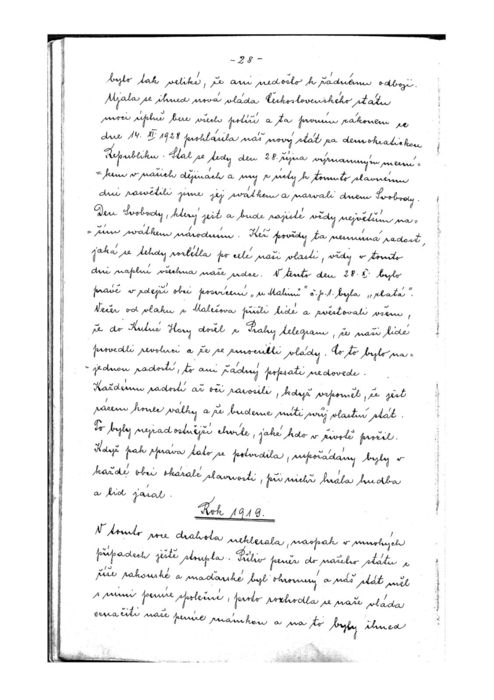 - 28 -
bylo tak veliké, že ani nedošlo k žádnému odboji.
Ujala se ihned nová vláda Československého státu
moci úplně bere všech potíží a ta prvním zákonem ze
dne 14. XI 1928 prohlásila náš nový stát za demokratickou
Republiku. Stal se tedy den 28. října významným mezní-
-kem v našich dějinách a my z úcty k tomuto slavnému
dni zasvětili jsme jej svátkem a nazvali dnem Svobody.
Den Svobody, který jest a bude zajisté vždy největším na-
-ším svátkem národním. Kéž povždy ta nesmírná radost,
jaká se tehdy rozlétla po celé naší vlasti, vždy v tomto
dni naplní všechna naše srdce. V tento den 28. X. bylo
právě v zdejší obci posvícení „u Malinů" č.p.1. byla „zlatá".
Večer od vlaku z Malešova přišli lidé a zvěstovali všem,
že do Kutné Hory došel z Prahy telegram, že naši lidé
provedli revoluci a že se zmocnili vlády. Co to bylo na-
-jednou radostí, to ani žádný popsati nedovede.
Každému radostí až oči zarosile, když vzpoměl, že jest
rázem konec války a že budeme míti svůj vlastní stát.
To byly nejradostnější chvíle, jaké kdo v životě prožil.
Když pak zpráva tato se potvrdila, uspořádány byly v
každé obci okázalé slavnosti, při nichž hrála hudba
a lid jásal.
Rok 1919.
V tomto roce drahota neklesala, naopak v mnohých
případech ještě stoupla. Příliv peněz do našeho státu z
říše rakouské a maďarské byl ohromný a náš stát měl
s nimi peníze společné, proto rozhodla se naše vláda
označiti naše peníze známkou a na to byly ihned